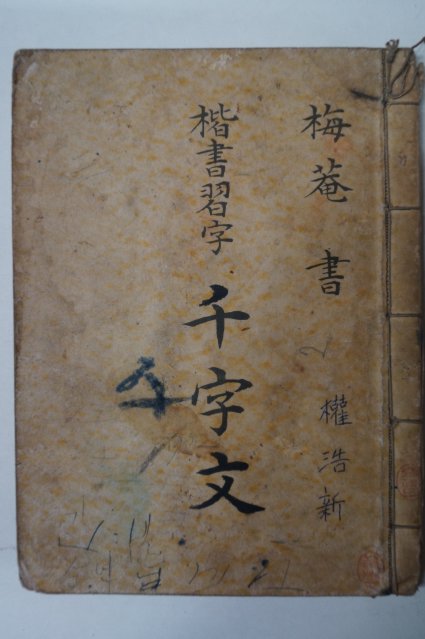 梅菴書
權浩新
楷書習字
千字文